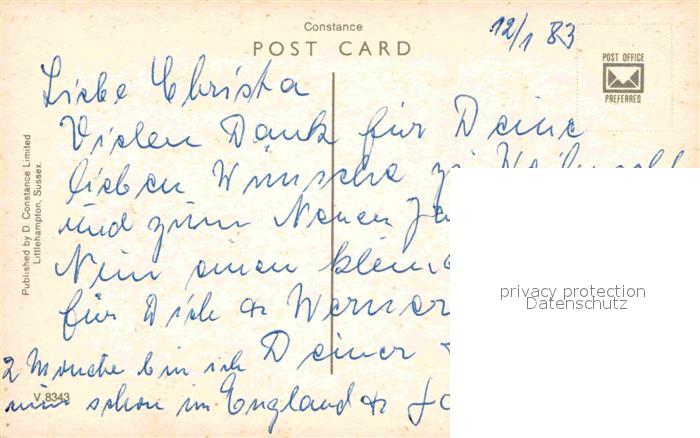 Constance
POST CARD
12/1 83
POST OFFICE
PREFERRED
Liebe Christa
Vielen Dank für Deine
lieben Wünsche zu
und zum Neuen
einen
für Dich & Werner
2 Monate bin ich Deiner
nun schon in England &
V 8343
Published by D. Constance Limited
Littlehampton, Sussex.
privacy protection
Datenschutz